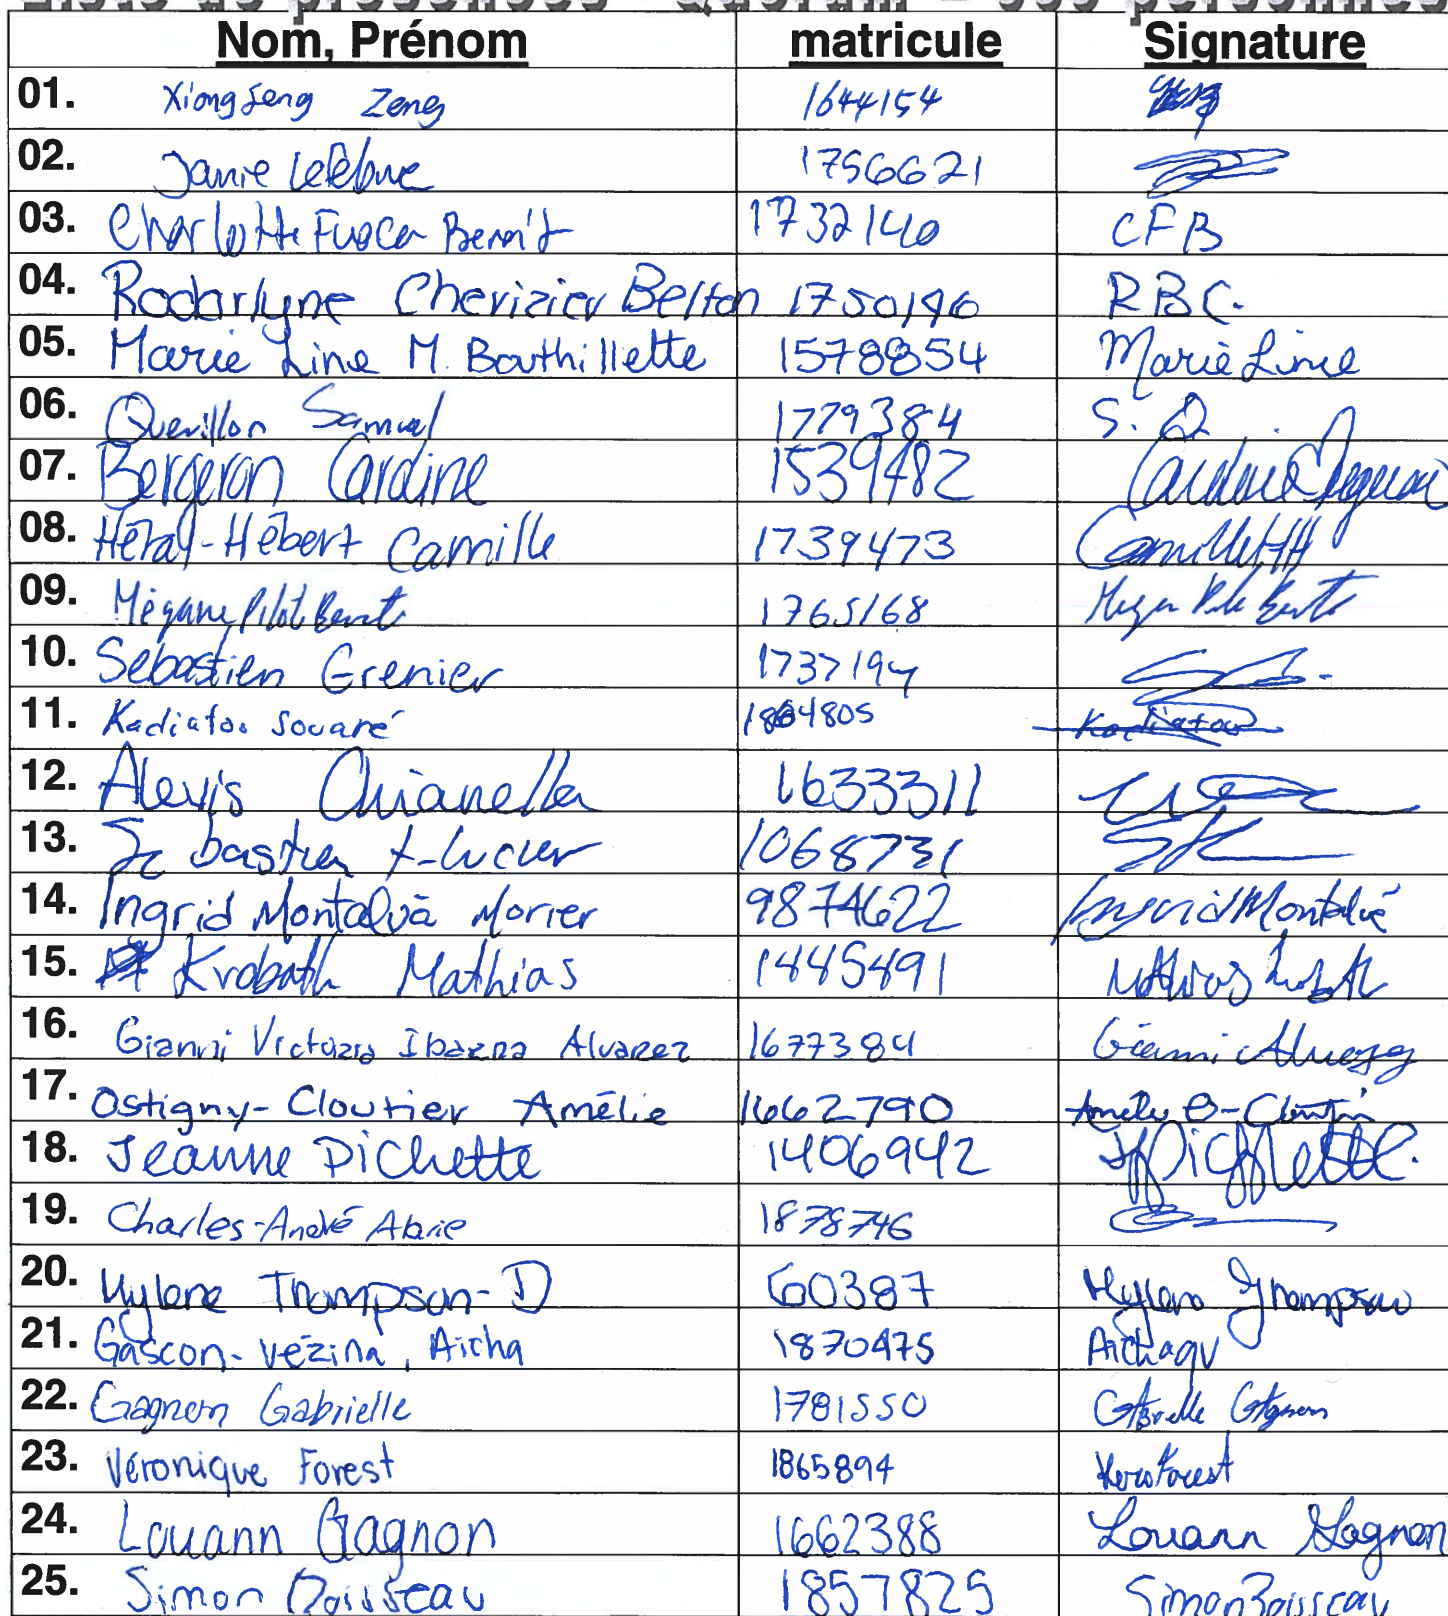 Liste de présences - Quorum - 356 personnes
Nom, Prénom matricule Signature
01. Xiongfeng Zeng 1644154
02. Janie Lefebvre 1756621
03. Charlotte Fuoca Benoit 1732140 CFB
04. Rodarlyne Chevizier Belton 1750196 RBC.
05. Marie Line M. Bouthillette 1578854 Marie Line
06. Quevillon Samuel 1779384 S. Q
07. Bergeron Caroline 1539482 Caroline Bergeron
08. Hétay-Hébert Camille 1739473 Camille HH
09. Mégane Pilot Benoit 1765168
10. Sebastien Grenier 1737194
11. Kadiatou Souaré 1864805 Kadiatou
12. Alexis Chianella 1633311
13. Sebastien St-Lucier 1068731
14. Ingrid Montalvà Morier 9874622 Ingrid Montalvà
15. Krobath Mathias 1445491 Mathias Krobath
16. Gianni Victozia Ibazra Alvarez 1677384 Gianni Alvarez
17. Ostigny-Cloutier Amélie 1662790 Amélie O-Cloutier
18. Jeanne Pichette 1406942 J Pichette
19. Charles-André Alarie 1878746
20. Mylene Thompson-D 60387 Mylene Thompson
21. Gascon-Vézina, Aicha 1870475 Aichagv
22. Gagnon Gabrielle 1781550 Gabrielle Gagnon
23. Véronique Forest 1865894 Vero Forest
24. Louann Gagnon 1662388 Louann Gagnon
25. Simon Boisseau 1857825 Simon Boisseau